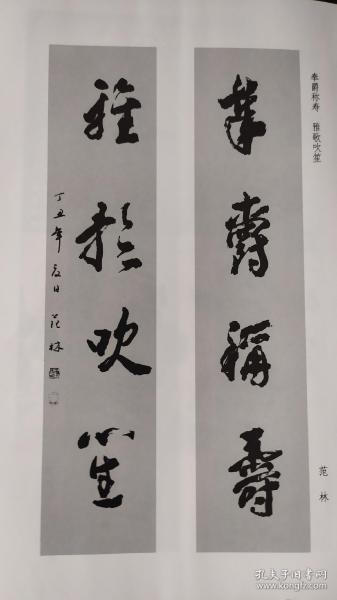 奉爵称寿 雅歌吹笙
奉爵稱壽
雅歌吹笙
丁丑年夏日 范林
范林
孔夫子旧书网